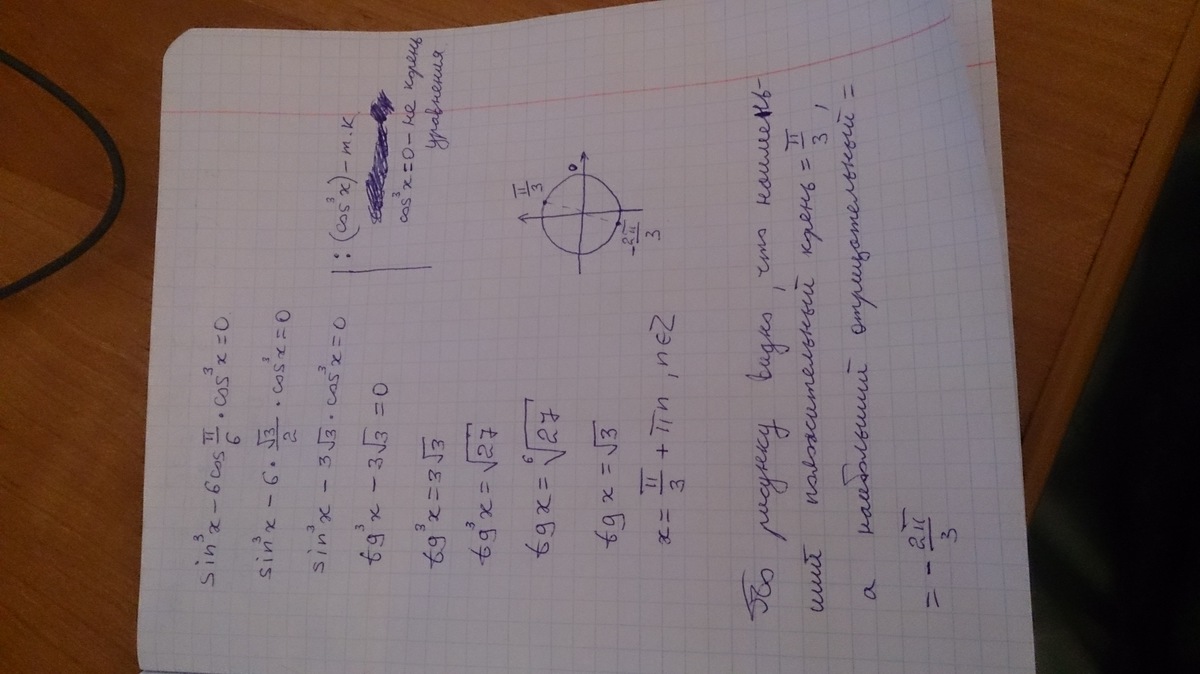 sin³x - 6cos π/6 · cos³x = 0
sin³x - 6 · √3/2 · cos³x = 0
sin³x - 3√3 · cos³x = 0 | : (cos³x) - т.к
cos³x = 0 - не корень
уравнения
tg³x - 3√3 = 0
tg³x = 3√3
tg³x = √27
tgx = ⁶√27
tgx = √3
x = π/3 + πn, n∈Z
π/3
0
-2π/3
По рисунку видно, что наимень-
ший положительный корень = π/3,
а наибольший отрицательный =
= - 2π/3